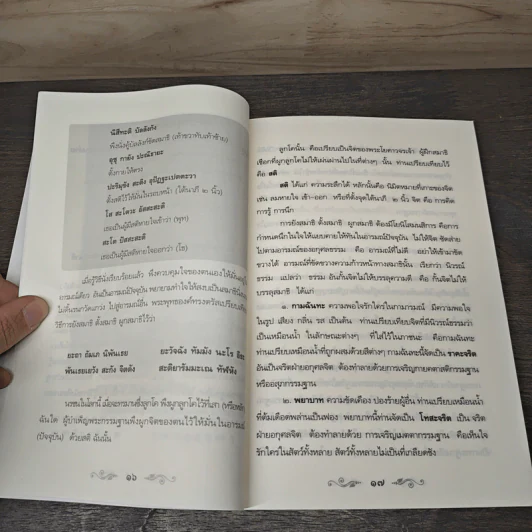 นิสีทะติ ปัลลังกัง
พึงนั่งคู้บัลลังก์ขัดสมาธิ (เท้าขวาทับเท้าซ้าย)
อุชุ กายัง ปะณิธายะ
ตั้งกายให้ตรง
ปะริมุขัง สะติง อุปัฏฐะเปตตะวา
ตั้งสติไว้ให้มั่นในรอบหน้า (ได้นาภี ๒ นิ้ว)
โส สะโตวะ อัสสะสะติ
เธอเป็นผู้มีสติหายใจเข้าว่า (พุท)
สะโต ปัสสะสะติ
เธอเป็นผู้มีสติหายใจออกว่า (โธ)
เมื่อรู้วิธีนั่งเรียบร้อยแล้ว พึงควบคุมใจของตนเองให้มั่นอยู่ใน
อารมณ์เดียว อันเป็นอารมณ์ปัจจุบัน พยายามทำใจให้สงบเป็นสมาธิ
ไม่ดิ้นรนกวัดแกว่ง ไปสู่อารมณ์อื่น พระพุทธองค์ทรงตรัสเปรียบเทียบ
วิธีการยังสมาธิ ตั้งสมาธิ ผูกสมาธิไว้ว่า
ยะถา ถัมเภ นิพันเธยะ ยะวัจฉัง ทัมมัง นะโร อิธะ
พันเธยเยวัง สะกัง จิตตัง สะติยารัมมะเณ ทัฬหัง
นรชนในโลกนี้ เมื่อจะทรมานซึ่งลูกโค พึงผูกลูกโคไว้ที่เสา (หรือหลัก)
ฉันใด ผู้บำเพ็ญพระกรรมฐานพึงผูกจิตของตนไว้ให้มั่นในอารมณ์
(ปัจจุบัน) ด้วยสติ ฉันนั้น
๑๖
ลูกโคนั้น คือเปรียบเป็นจิตของพระโยคาวจรเจ้า ผู้ฝึกสมาธิ
เชือกที่ผูกลูกโคไม่ให้ผ่านไปในที่ต่างๆ นั้น ท่านเปรียบเทียบไว้
คือ สติ
สติ ได้แก่ ความระลึกได้ หลักนั้นคือ นิมิตหมายที่เกาะของจิต
เช่น ลมหายใจ เข้า-ออก หรือที่ตั้งจุดใต้นาภี ๒ นิ้ว จิต คือ การคิด
การรู้ การนึก
การยังสมาธิ ตั้งสมาธิ ผูกสมาธิ ต้องมีโยนิโสมนสิการ คือการ
กำหนดนึกในใจให้แยบคายให้ทันในอารมณ์ปัจจุบัน ไม่ให้จิต ซัดส่าย
ไปตามอารมณ์ของอกุศลธรรม คือ อารมณ์ที่ไม่ดี อย่าให้เข้ามาขัด
ขวางได้ อารมณ์ที่ขัดขวางความก้าวหน้าทางสมาธินั้น เรียกว่า นิวรณ์
ธรรม แปลว่า ธรรม อันกั้นจิตไม่ให้บรรลุความดี คือ กั้นจิตไม่ให้
บรรลุสมาธิ ได้แก่
๑. กามฉันทะ ความพอใจรักใคร่ในกามารมณ์ มีความพอใจ
ในรูป เสียง กลิ่น รส เป็นต้น ท่านเปรียบเทียบจิตที่มีนิวรณ์ธรรมว่า
เป็นเหมือนน้ำ ในลักษณะต่างๆ ที่ใส่ไว้ในภาชนะ คือกามฉันทะ
ท่านเปรียบเสมือนน้ำที่ถูกผสมด้วยสีต่างๆ กามฉันทะนี้จัดเป็น ราคะจริต
อันเป็นจริตฝ่ายอกุศลจิต ต้องทำลายด้วยการเจริญกายคตาสติกรรมฐาน
หรืออสุภกรรมฐาน
๒. พยาบาท ความขัดเคือง ปองร้ายผู้อื่น ท่านเปรียบเหมือนน้ำ
ที่ต้มเดือดพล่านเป็นฟอง พยาบาทนี้ท่านจัดเป็น โทสะจริต เป็น จริต
ฝ่ายอกุศลจิต ต้องทำลายด้วย การเจริญเมตตากรรมฐาน คือเห็นใจ
รักใคร่ในสัตว์ทั้งหลาย สัตว์ทั้งหลายไม่เป็นที่เกลียดชัง
๑๗